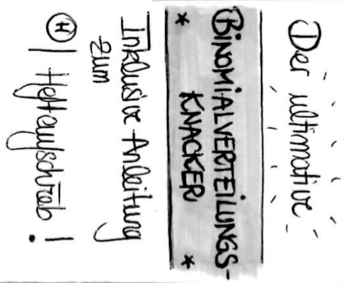 Der ultimative
BINOMIALVERTEILUNGS-
* KNACKER *
Inklusive Anleitung
zum
(H) ! Heftaufschrieb !